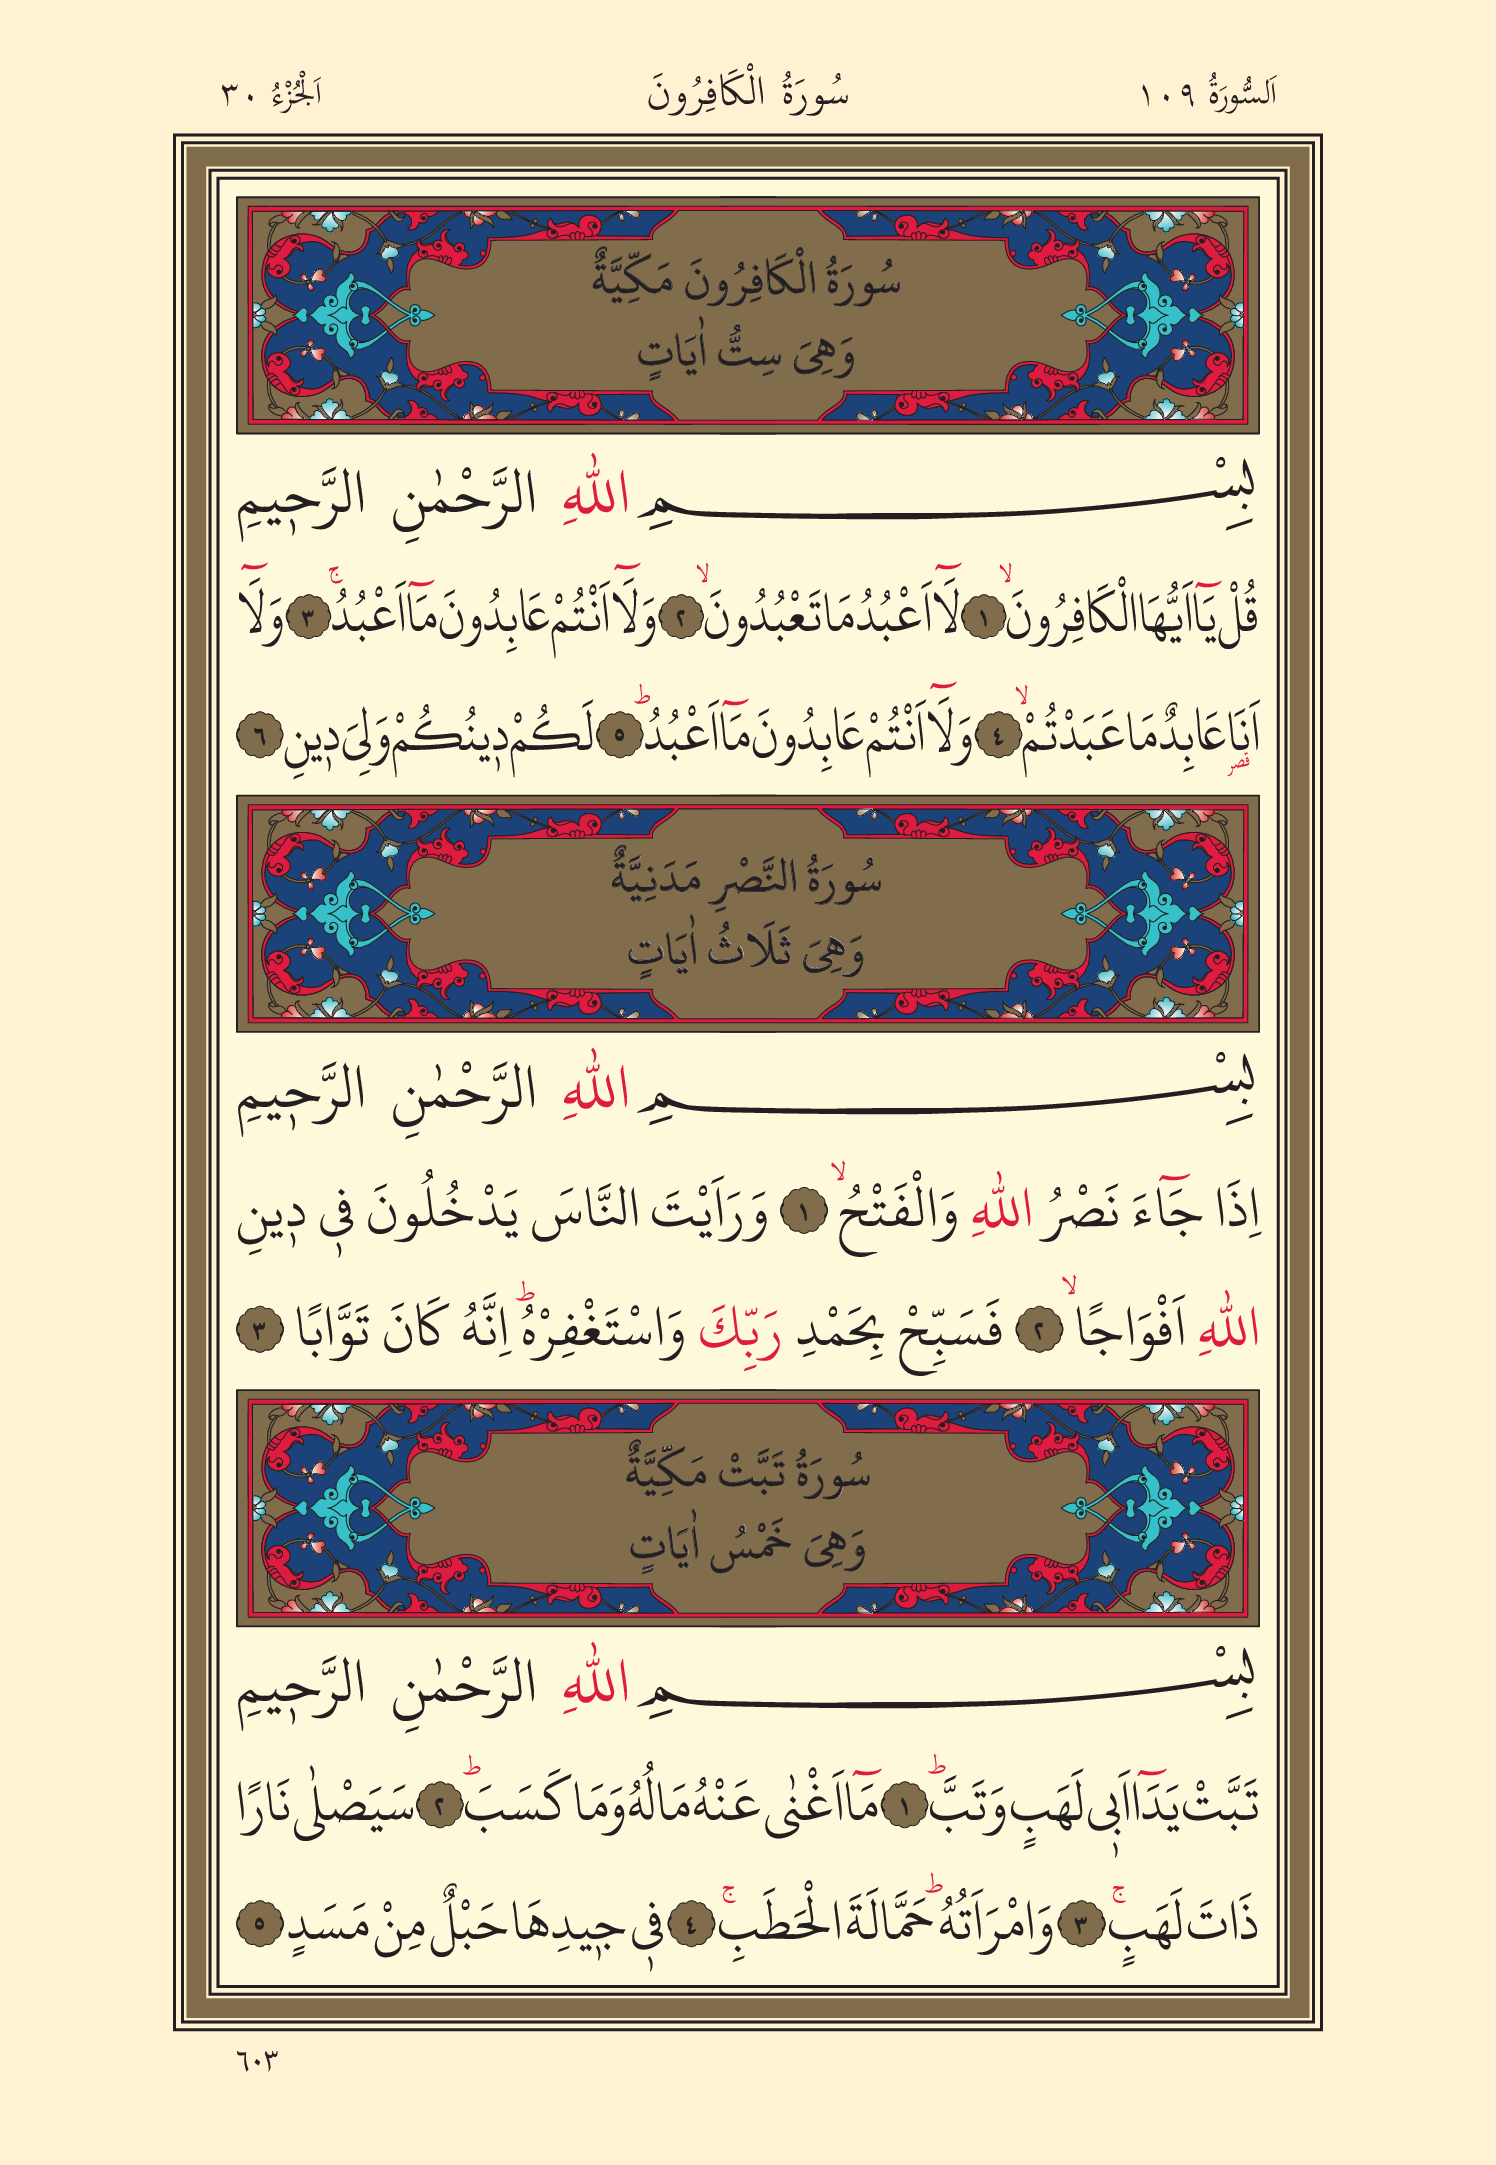 اَلسُّورَةُ ١٠٩ سُورَةُ الْكَافِرُونَ اَلْجُزْءُ ٣٠
سُورَةُ الْكَافِرُونَ مَكِّيَّةٌ
وَهِىَ سِتُّ اٰيَاتٍ
بِسْمِ اللّٰهِ الرَّحْمٰنِ الرَّح۪يمِ
قُلْ يَٓا اَيُّهَا الْكَافِرُونَۙ ١ لَٓا اَعْبُدُ مَا تَعْبُدُونَۙ ٢ وَلَٓا اَنْتُمْ عَابِدُونَ مَٓا اَعْبُدُۚ ٣ وَلَٓا
اَنَا۬ عَابِدٌ مَا عَبَدْتُمْۙ ٤ وَلَٓا اَنْتُمْ عَابِدُونَ مَٓا اَعْبُدُۜ ٥ لَكُمْ د۪ينُكُمْ وَلِىَ د۪ينِ ٦
سُورَةُ النَّصْرِ مَدَنِيَّةٌ
وَهِىَ ثَلَاثُ اٰيَاتٍ
بِسْمِ اللّٰهِ الرَّحْمٰنِ الرَّح۪يمِ
اِذَا جَٓاءَ نَصْرُ اللّٰهِ وَالْفَتْحُۙ ١ وَرَاَيْتَ النَّاسَ يَدْخُلُونَ ف۪ى د۪ينِ
اللّٰهِ اَفْوَاجًاۙ ٢ فَسَبِّحْ بِحَمْدِ رَبِّكَ وَاسْتَغْفِرْهُۜ اِنَّهُ كَانَ تَوَّابًا ٣
سُورَةُ تَبَّتْ مَكِّيَّةٌ
وَهِىَ خَمْسُ اٰيَاتٍ
بِسْمِ اللّٰهِ الرَّحْمٰنِ الرَّح۪يمِ
تَبَّتْ يَدَٓا اَب۪ى لَهَبٍ وَتَبَّۜ ١ مَٓا اَغْنٰى عَنْهُ مَالُهُ وَمَا كَسَبَۜ ٢ سَيَصْلٰى نَارًا
ذَاتَ لَهَبٍۚ ٣ وَامْرَاَتُهُۜ حَمَّالَةَ الْحَطَبِۚ ٤ ف۪ى ج۪يدِهَا حَبْلٌ مِنْ مَسَدٍ ٥
٦٠٣